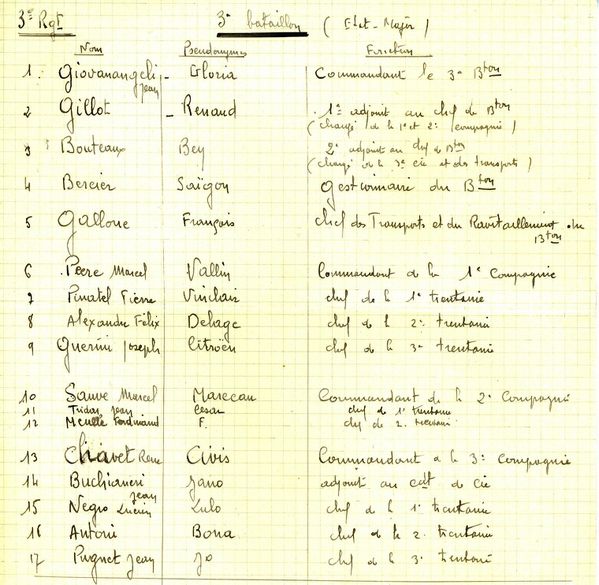 3e Rgt 3e bataillon ( Etat-Major )
Nom Pseudonymes Fonction
1. Giovanangeli Jean - Gloria Commandant le 3e Bton
2 Gillot - Renaud 1er adjoint au chef de Bton
( chargé de la 1e et 2e compagnie )
3 Bouteaux Bey 2e adjoint au chef de Bton
( chargé de la 3e cie et des transports )
4 Bercier Saïgon Gestionnaire du Bton
5 Gallone François chef des Transports et du Ravitaillement du Bton
6 Peere Marcel Vallin Commandant de la 1e Compagnie
7 Pinatel Pierre Vinclair chef de la 1e trentaine
8 Alexandre Félix Dehage chef de la 2e trentaine
9 Guerini Joseph Citroën chef de la 3e trentaine
10 Sauve Marcel Marceau Commandant de la 2e Compagnie
11 Jean Cesar chef de 1e trentaine
12 Ferdinand F. chef de 2e trentaine
13 Chavet Rene Civis Commandant de la 3e Compagnie
14 Buchianeri Jean Jano adjoint au cdt de cie
15 Negro Lucien Lulo chef de la 1e trentaine
16 Antoni Bona chef de la 2e trentaine
17 Pugnet Jean Jo chef de la 3e trentaine